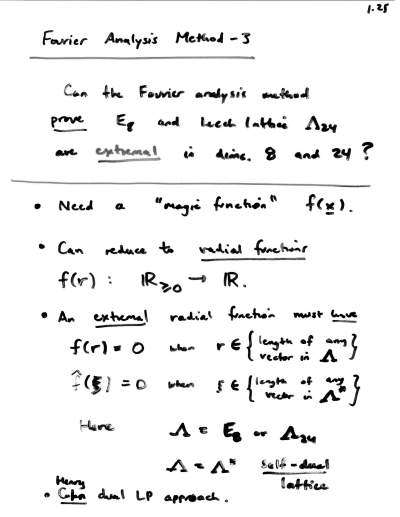 1.25
Fourier Analysis Method - 3
Can the Fourier analysis method
prove E₈ and Leech lattice Λ₂₄
are extremal in dims. 8 and 24?
• Need a "magic function" f(x).
• Can reduce to radial functions
f(r) : ℝ≥0 → ℝ.
• An extremal radial function must have
f(r) = 0 when r ∈ {length of any vector in Λ}
f̂(ξ) = 0 when ξ ∈ {length of any vector in Λ*}
Here Λ = E₈ or Λ₂₄
Λ = Λ* self-dual
lattice
Henry
• Cohn dual LP approach.